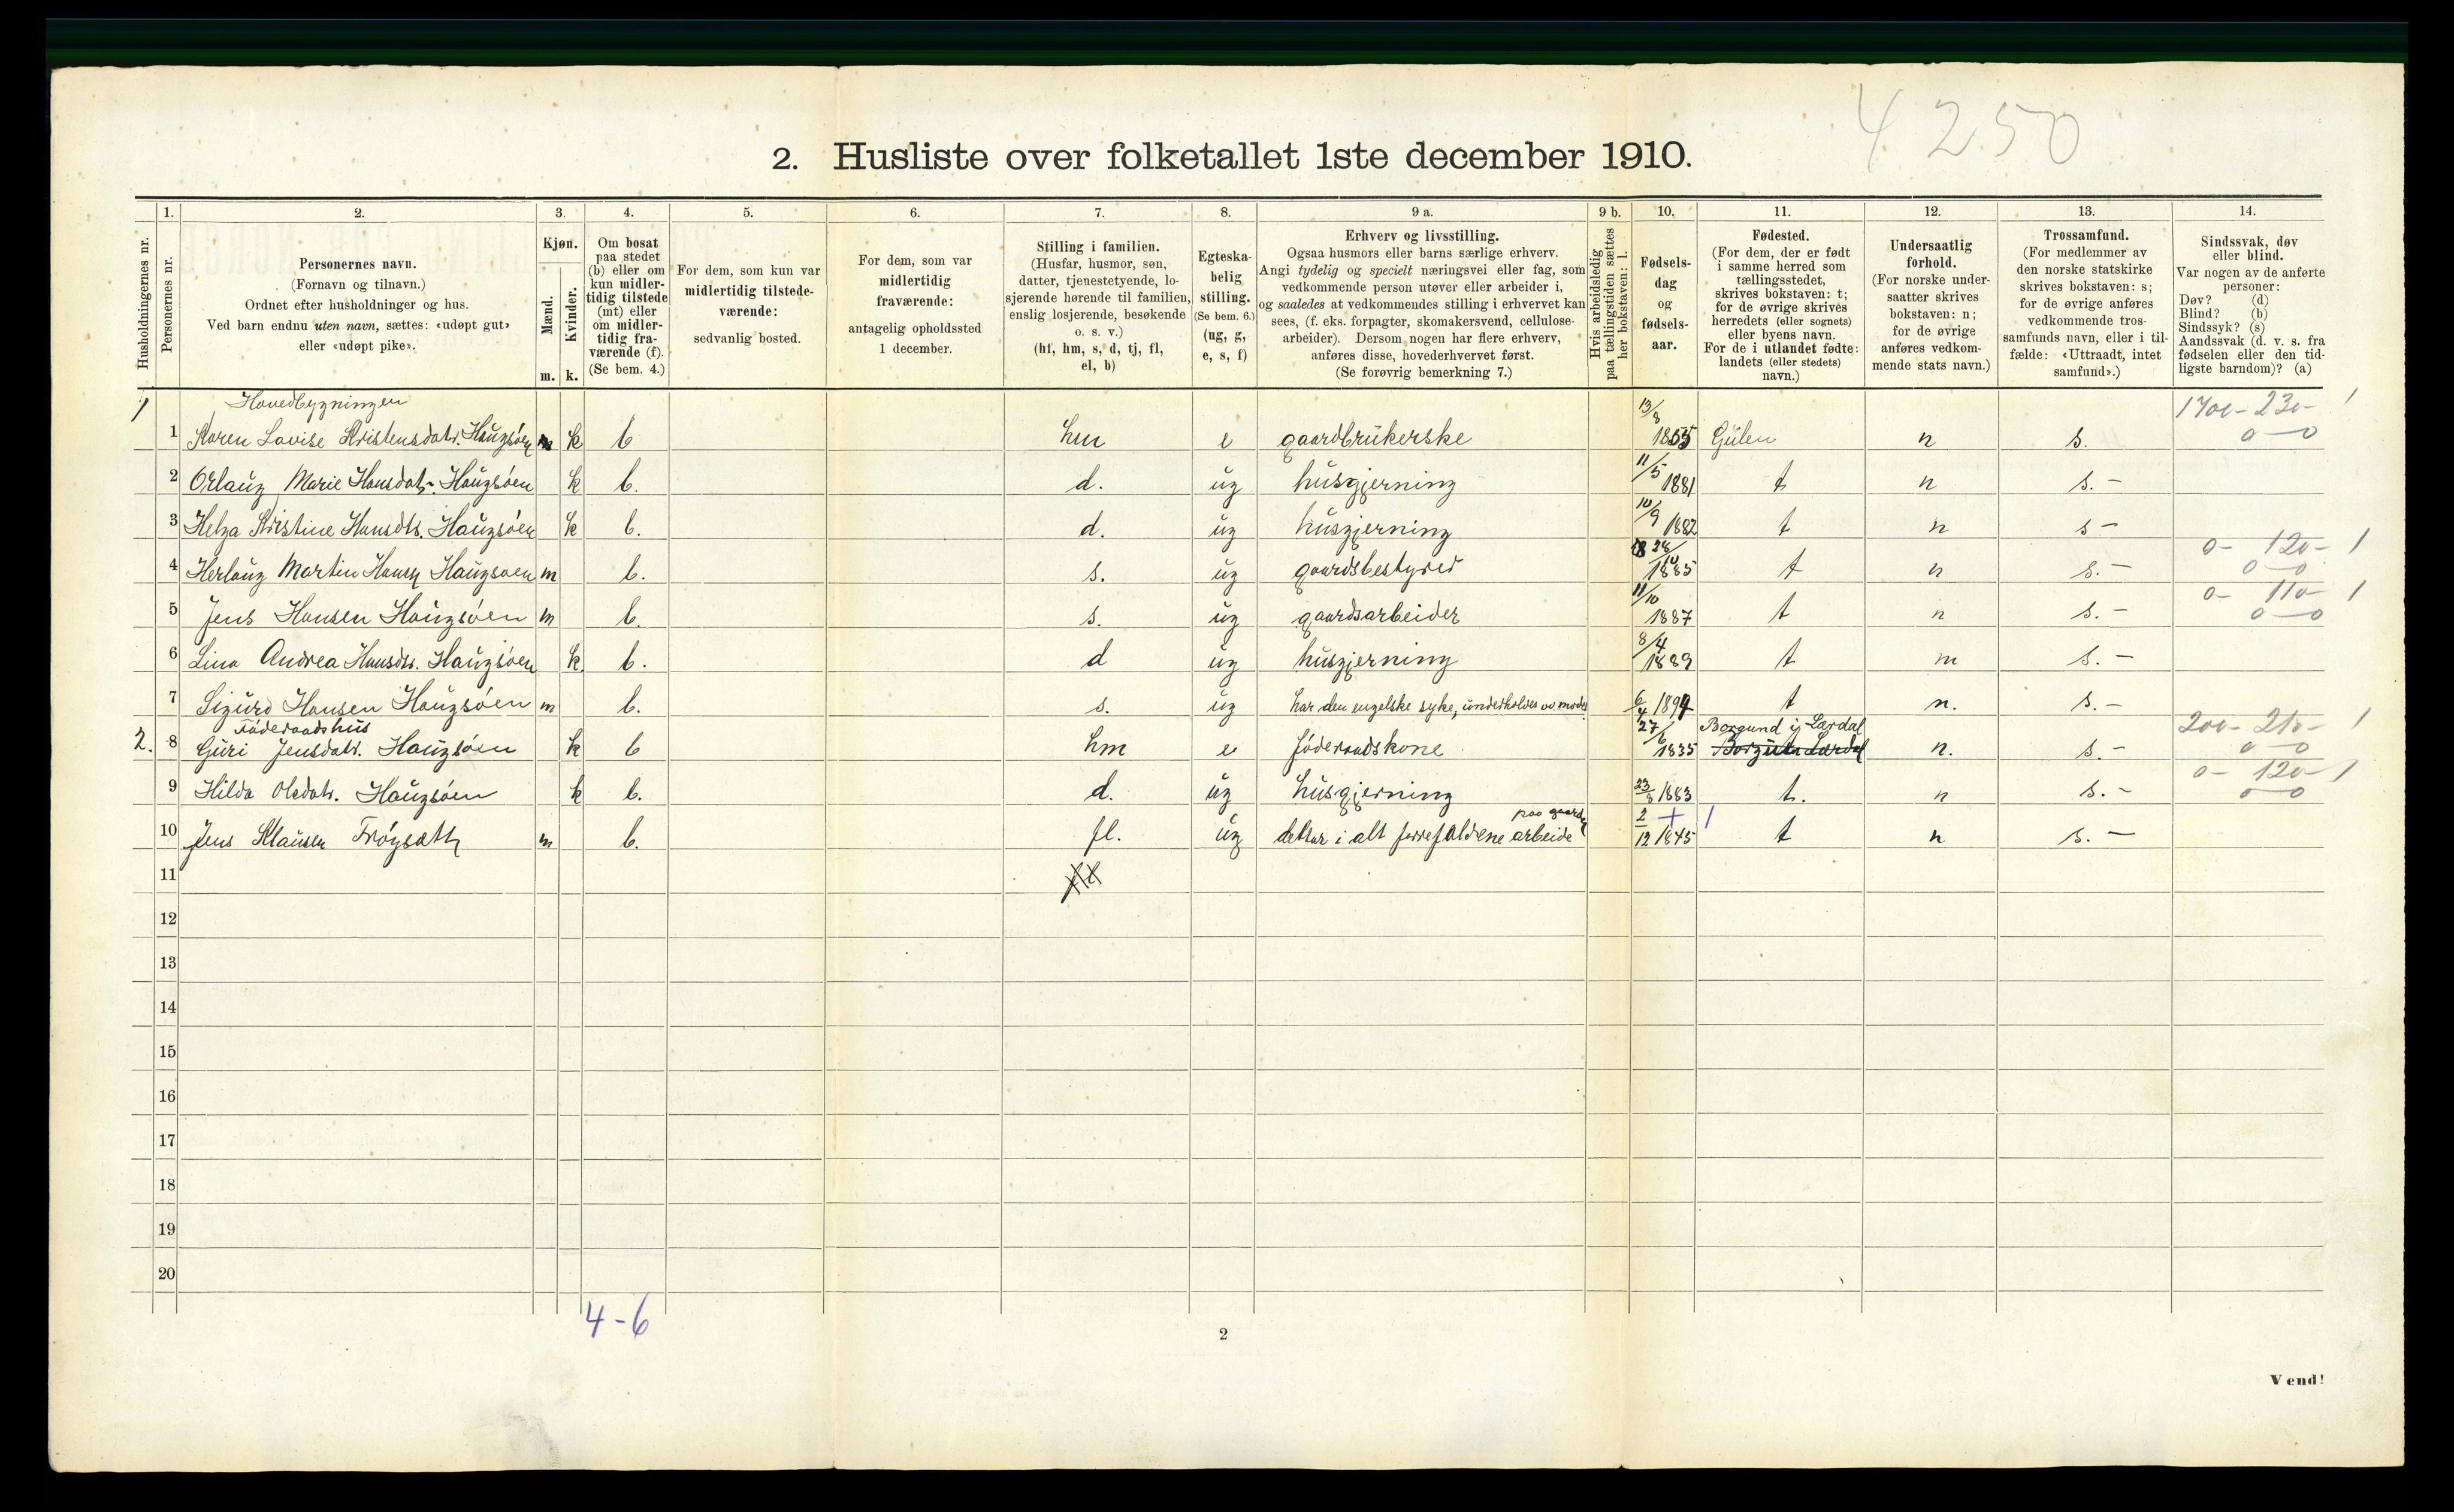 4250
2. Husliste over folketallet 1ste december 1910.
Husholdningernes nr.
1. Personernes nr.
2. Personernes navn.
(Fornavn og tilnavn.)
Ordnet efter husholdninger og hus.
Ved barn endnu uten navn, sættes: «udøpt gut»
eller «udøpt pike».
3. Kjøn.
Mænd. m.
Kvinder. k.
4. Om bosat
paa stedet
(b) eller om
kun midler-
tidig tilstede
(mt) eller
om midler-
tidig fra-
værende (f).
(Se bem. 4.)
5. For dem, som kun var
midlertidig tilstede-
værende:
sedvanlig bosted.
6. For dem, som var
midlertidig
fraværende:
antagelig opholdssted
1 december.
7. Stilling i familien.
(Husfar, husmor, søn,
datter, tjenestetyende, lo-
sjerende hørende til familien,
enslig losjerende, besøkende
o. s. v.)
(hf, hm, s, d, tj, fl,
el, b)
8. Egteska-
belig
stilling.
(Se bem. 6.)
(ug, g,
e, s, f)
9 a. Erhverv og livsstilling.
Ogsaa husmors eller barns særlige erhverv.
Angi tydelig og specielt næringsvei eller fag, som
vedkommende person utøver eller arbeider i,
og saaledes at vedkommendes stilling i erhvervet kan
sees, (f. eks. forpagter, skomakersvend, cellulose-
arbeider). Dersom nogen har flere erhverv,
anføres disse, hovederhvervet først.
(Se forøvrig bemerkning 7.)
9 b. Hvis arbeidsledig
paa tællingstiden sættes
her bokstaven: l.
10. Fødsels-
dag
og
fødsels-
aar.
11. Fødested.
(For dem, der er født
i samme herred som
tællingsstedet,
skrives bokstaven: t;
for de øvrige skrives
herredets (eller sognets)
eller byens navn.
For de i utlandet fødte:
landets (eller stedets)
navn.)
12. Undersaatlig
forhold.
(For norske under-
saatter skrives
bokstaven: n;
for de øvrige
anføres vedkom-
mende stats navn.)
13. Trossamfund.
(For medlemmer av
den norske statskirke
skrives bokstaven: s;
for de øvrige anføres
vedkommende tros-
samfunds navn, eller i til-
fælde: «Uttraadt, intet
samfund».)
14. Sindssvak, døv
eller blind.
Var nogen av de anførte
personer:
Døv? (d)
Blind? (b)
Sindssyk? (s)
Aandssvak (d. v. s. fra
fødselen eller den tid-
ligste barndom)? (a)
1 Hovedbygningen 1700-230- 1
1 Karen Lovise Kristensdatr. Haugsøen k b hm e gaardbrukerske 13/8 1855 Gulen n s. 0-0
2 Orlaug Marie Hansdatr. Haugsøen k b. d. ug husgjerning 11/5 1881 t n s.-
3 Helga Kristine Hansdtr. Haugsøen k b. d. ug husgjerning 10/9 1882 t n s-
0- 120- 1
4 Herlaug Martin Hansen Haugsøen m b. s. ug gaardsbestyrer 28/10 1885 t n s.- 0-0
0- 110- 1
5 Jens Hansen Haugsøen m b. s. ug gaardsarbeider 11/10 1887 t n s.- 0-0
6 Lina Andrea Hansdtr. Haugsøen k b. d ug husgjerning 8/4 1889 t n s.-
7 Sigurd Hansen Haugsøen m b. s. ug har den engelske syke, underholdes av moder 6/4 1899 t n. s.-
2. Føderaadshus Borgund i Lærdal 200-210- 1
8 Guri Jensdatr. Haugsøen k b hm e føderaadskone 27/6 1835 Borgund Lærdal n. s.- 0-0
0- 120- 1
9 Hilda Olsdatr. Haugsøen k b. d. ug husgjerning 23/8 1883 t. n s.- 0-0
paa gaarden
10 Jens Klausen Frøysæth m b. fl. ug deltar i alt forefaldene arbeide 2/12 1845 + 1 t n s.-
11 fl
12
13
14
15
16
17
18
19
20
4-6
2
Vend!